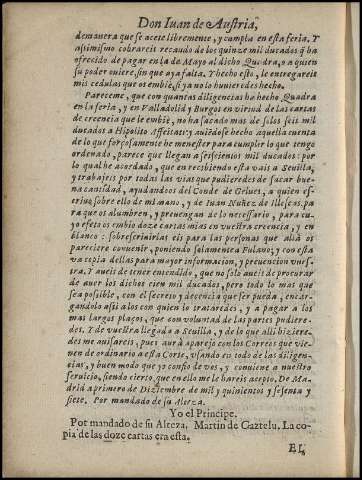 Don Iuan de Austria,
demanera que se acete libremente, y cumpta en esta feria. Y
assimismo cobrareis recaudo de los quinze mil ducados q̃ ha
ofrecido de pagar en la de Mayo al dicho Quadra, o a quien
su poder uviere, sin que aya falta. Y hecho esto, le entregareis
mis cedulas que os embiè, si ya no lo huvieredes hecho.
Pareceme, que con quantas diligencias ha hecho Quadra
en la feria, y en Valladolid y Burgos en virtud de las cartas
de creencia que le embiè, no ha sacado mas de solos seis mil
ducados a Hipolito Affeitati: y aviẽdose hecho aquella cuenta
de lo que forçosamente he menester para cumplir lo que tengo
ordenado, parece que llegan a seiscientos mil ducados: por
lo qual he acordado, que en recibiendo esta vais a Sevilla,
y trabajeis por todas las vias que pudieredes de sacar bue
na cantidad, ayudandoos del Conde de Gelves, a quien es-
crivo sobre ello de mi mano, y de Iuan Nuñez de Illescas, pa
ra que os alumbren, y prevengan de lo necessario, para cu-
yo efeto os embio doze cartas mias en vuestra creencia, y en
blanco: sobrescriviràs eis para las personas que allà os
pareciere convenir, poniendo solamente Fulano; y con esta
va copia dellas para mayor informacion, y prevencion vues-
tra. Y aveis de tener entendido, que no solo aveis de procurar
de aver los dichos cien mil ducados, pero todo lo mas que
sea possible, con el secreto y decencia que ser pueda, encar-
gandolo assi a los con quien lo trataredes, y a pagar a los
mas largos plaços, que con voluntad de las partes pudiere-
des. Y de vuestra llegada a Sevilla, y de lo que alli hiziere-
des me avisareis, pues avrà aparejo con los Correos que vie-
nen de ordinario a esta Corte, usando en todo de las diligen-
cias, y buen modo que yo confio de vos, y conviene a nuestro
servicio, siendo cierto que en ello me hareis acepto. De Ma-
drid a primero de Diziembre de mil y quinientos y sesenta y
siete. Por mandado de su Alteza.
Yo el Principe.
Por mandado de su Alteza, Martin de Gaztelu. La co-
pia de las doze cartas era esta.
EL